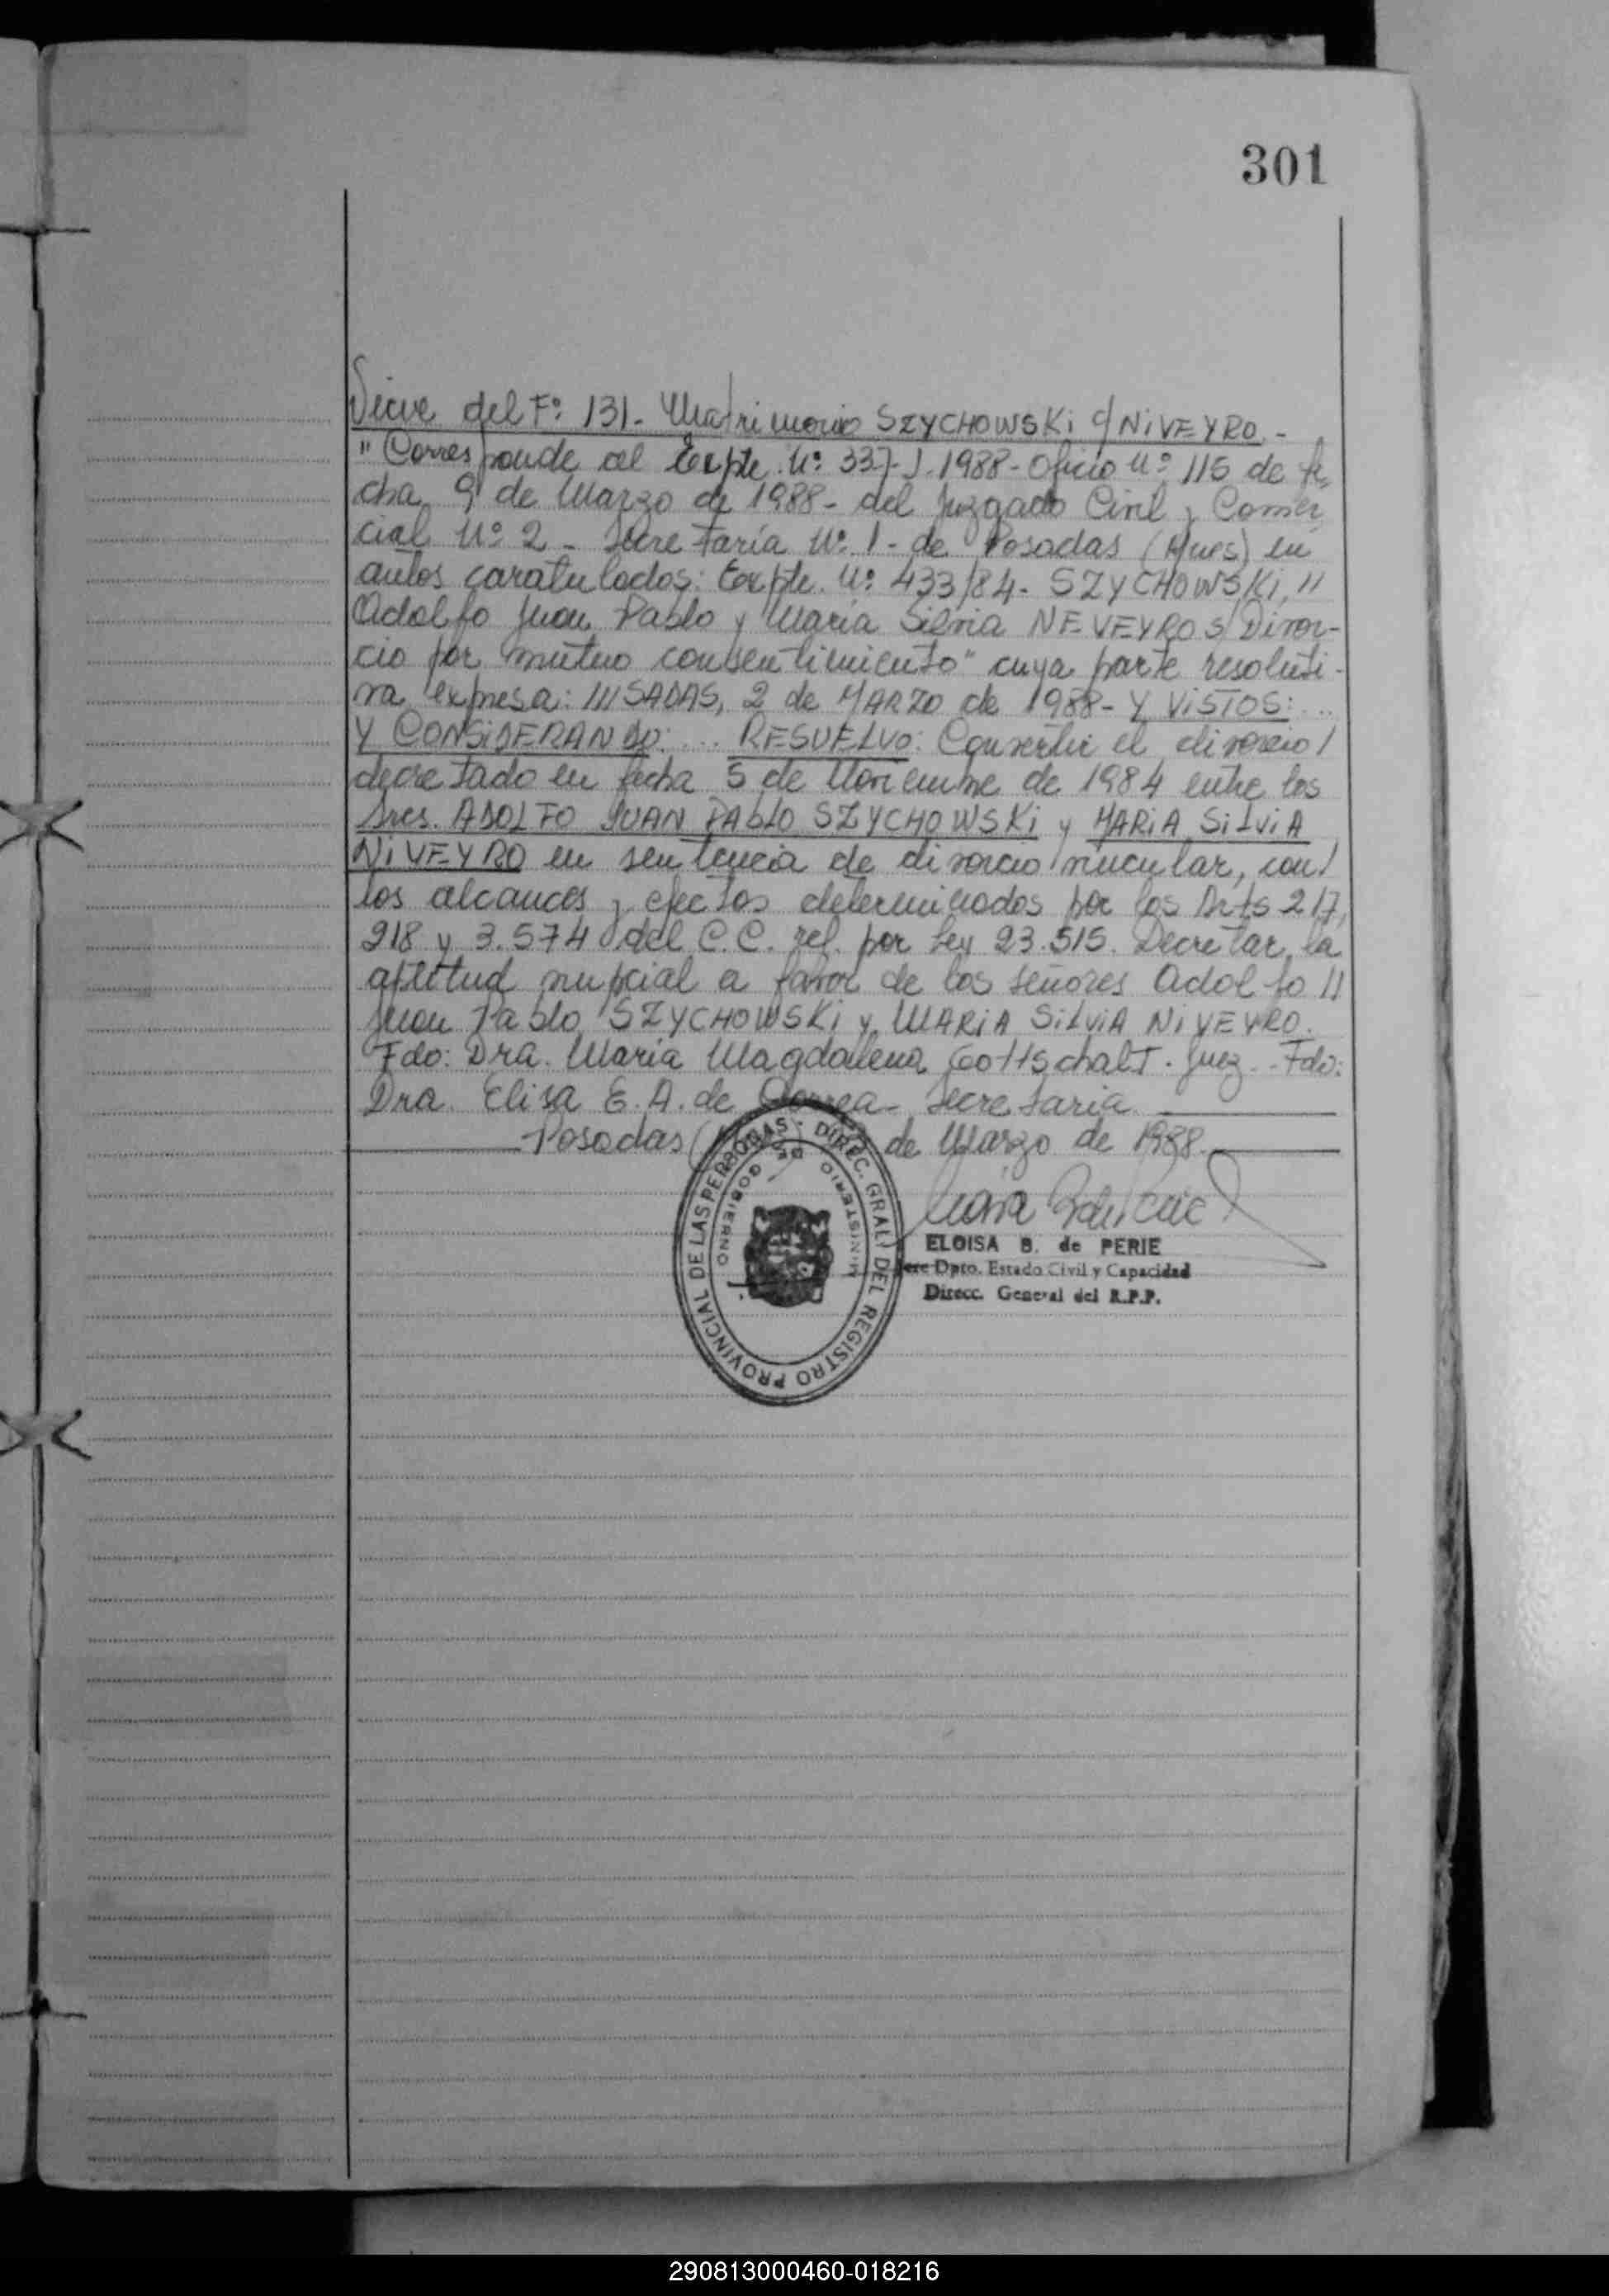 301
Viene del Fº 131- Matrimonio SZYCHOWSKi c/ NiVEYRO.-
"Corresponde al Expte. Nº 337-J-1988- Oficio Nº 115 de fe-
cha 9 de Marzo de 1988- del Juzgado Civil y Comer
cial Nº 2 - Secretaría Nº 1- de Posadas (Mnes) en
autos caratulados: Expte. Nº 433/84- SZYCHOWSKi, //
Adolfo Juan Pablo y María Silvia NEVEYRO S/ Divor-
cio por mutuo consentimiento" cuya parte resoluti-
va expresa: ///SADAS, 2 de MARZO de 1988- Y ViSTOS: ...
Y CONSiDERANDO: ... RESUELVO: Convertir el divorcio /
decretado en fecha 5 de Noviembre de 1984 entre los
Sres. ADOLFO JUAN PABLO SZYCHOWSKi y MARiA SiLViA
NiVEYRO en sentencia de divorcio vincular, con /
los alcances y efectos determinados por los Arts 217,
218 y 3.574 del C.C. ref. por Ley 23.515. Decretar la
aptitud nupcial a favor de los señores Adolfo //
Juan Pablo SZYCHOWSKi y MARiA SiLViA NiVEYRO.
Fdo: Dra. María Magdalena Gottschalt. Juez.- Fdo:
Dra. Elisa E. A. de Correa- Secretaria
Posadas ( de Marzo de 1988.
DIREC. GRAL. DEL REGISTRO PROVINCIAL DE LAS PERSONAS
MINISTERIO DE GOBIERNO
ELOISA B. de PERIE
Jefe Dpto. Estado Civil y Capacidad
Direcc. General del R.P.P.
290813000460-018216